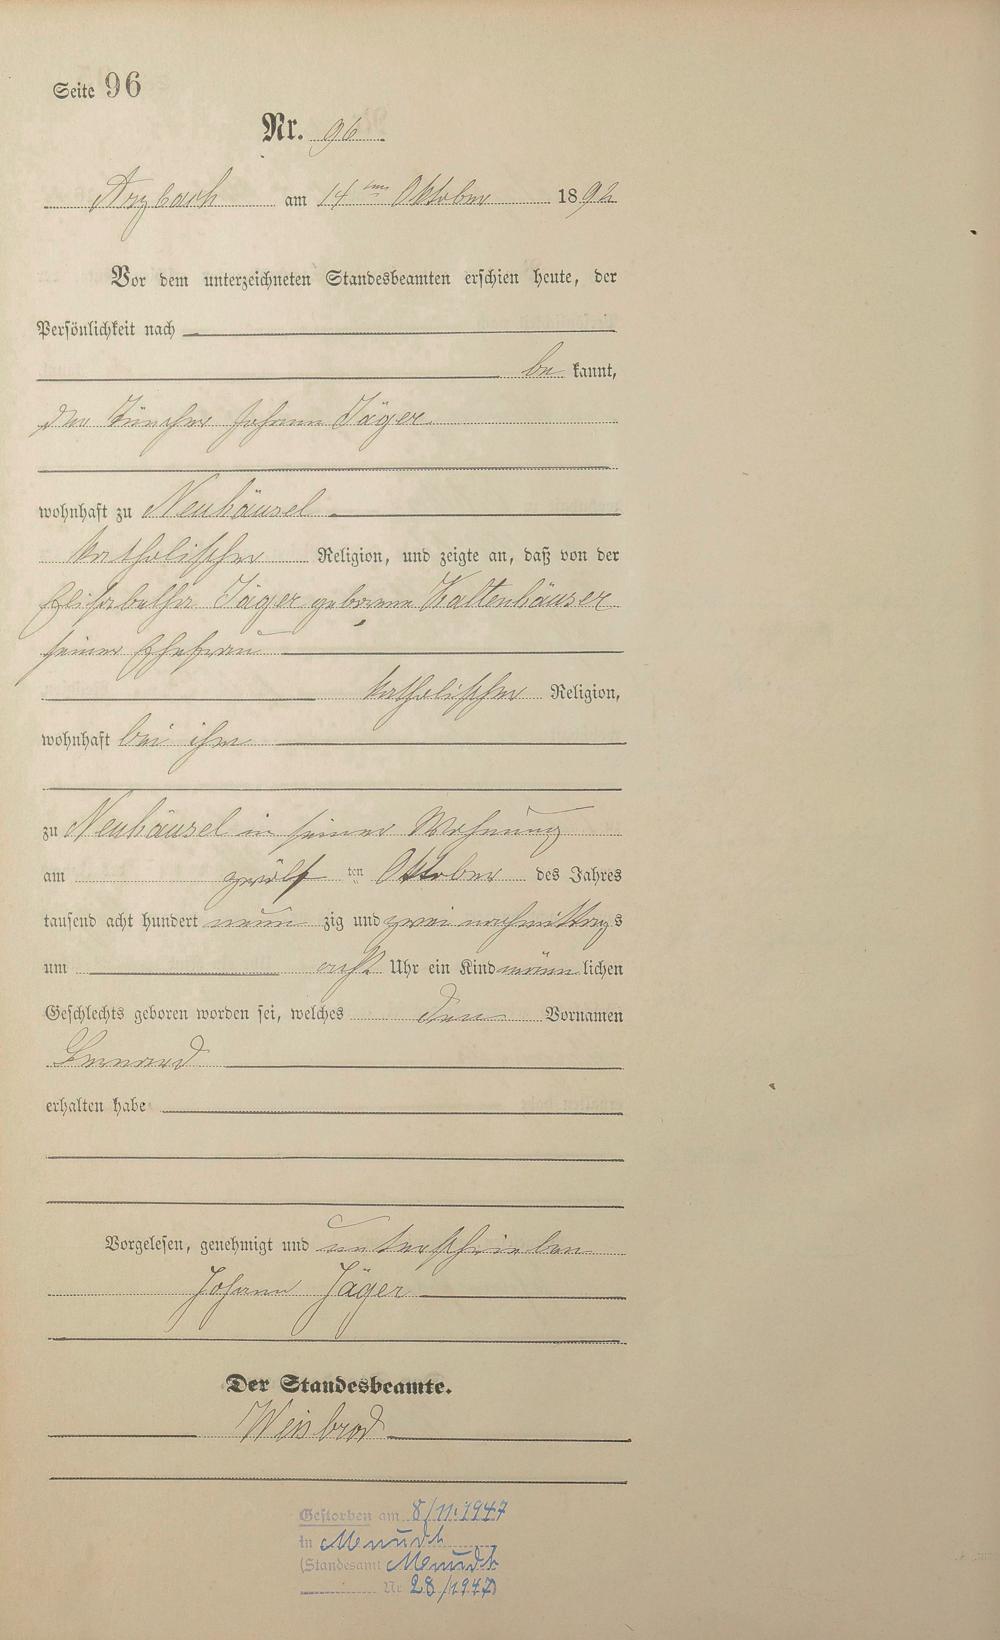 Seite 96
Nr. 96
Arzbach am 14ten Oktober 1892
Vor dem unterzeichneten Standesbeamten erschien heute, der
Persönlichkeit nach
be kannt,
der Tüncher Johann Jäger
wohnhaft zu Neuhäusel
katholischer Religion, und zeigte an, daß von der
Elisabetha Jäger geborene Kaltenhäuser
seiner Ehefrau
katholischer Religion,
wohnhaft bei ihm
zu Neuhäusel in seiner Wohnung
am zwölf ten Oktober des Jahres
tausend acht hundert neun zig und zwei nachmittags
um acht Uhr ein Kind männ lichen
Geschlechts geboren worden sei, welches den Vornamen
erhalten habe
Vorgelesen, genehmigt und unterschrieben
Johann Jäger
Der Standesbeamte.
Weisbrod
Gestorben am 8/11.1947
in
(Standesamt
Nr 28/1947)